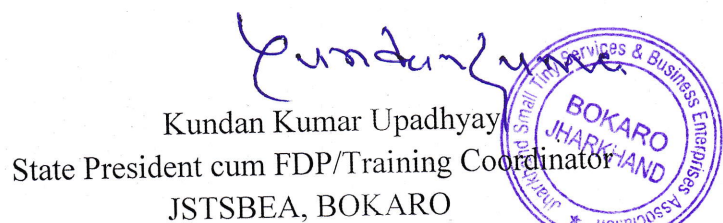 Kundan Kumar
Kundan Kumar Upadhyay
State President cum FDP/Training Coordinator
JSTSBEA, BOKARO
Jharkhand Small Tiny Services & Business Enterprises Association
BOKARO
JHARKHAND